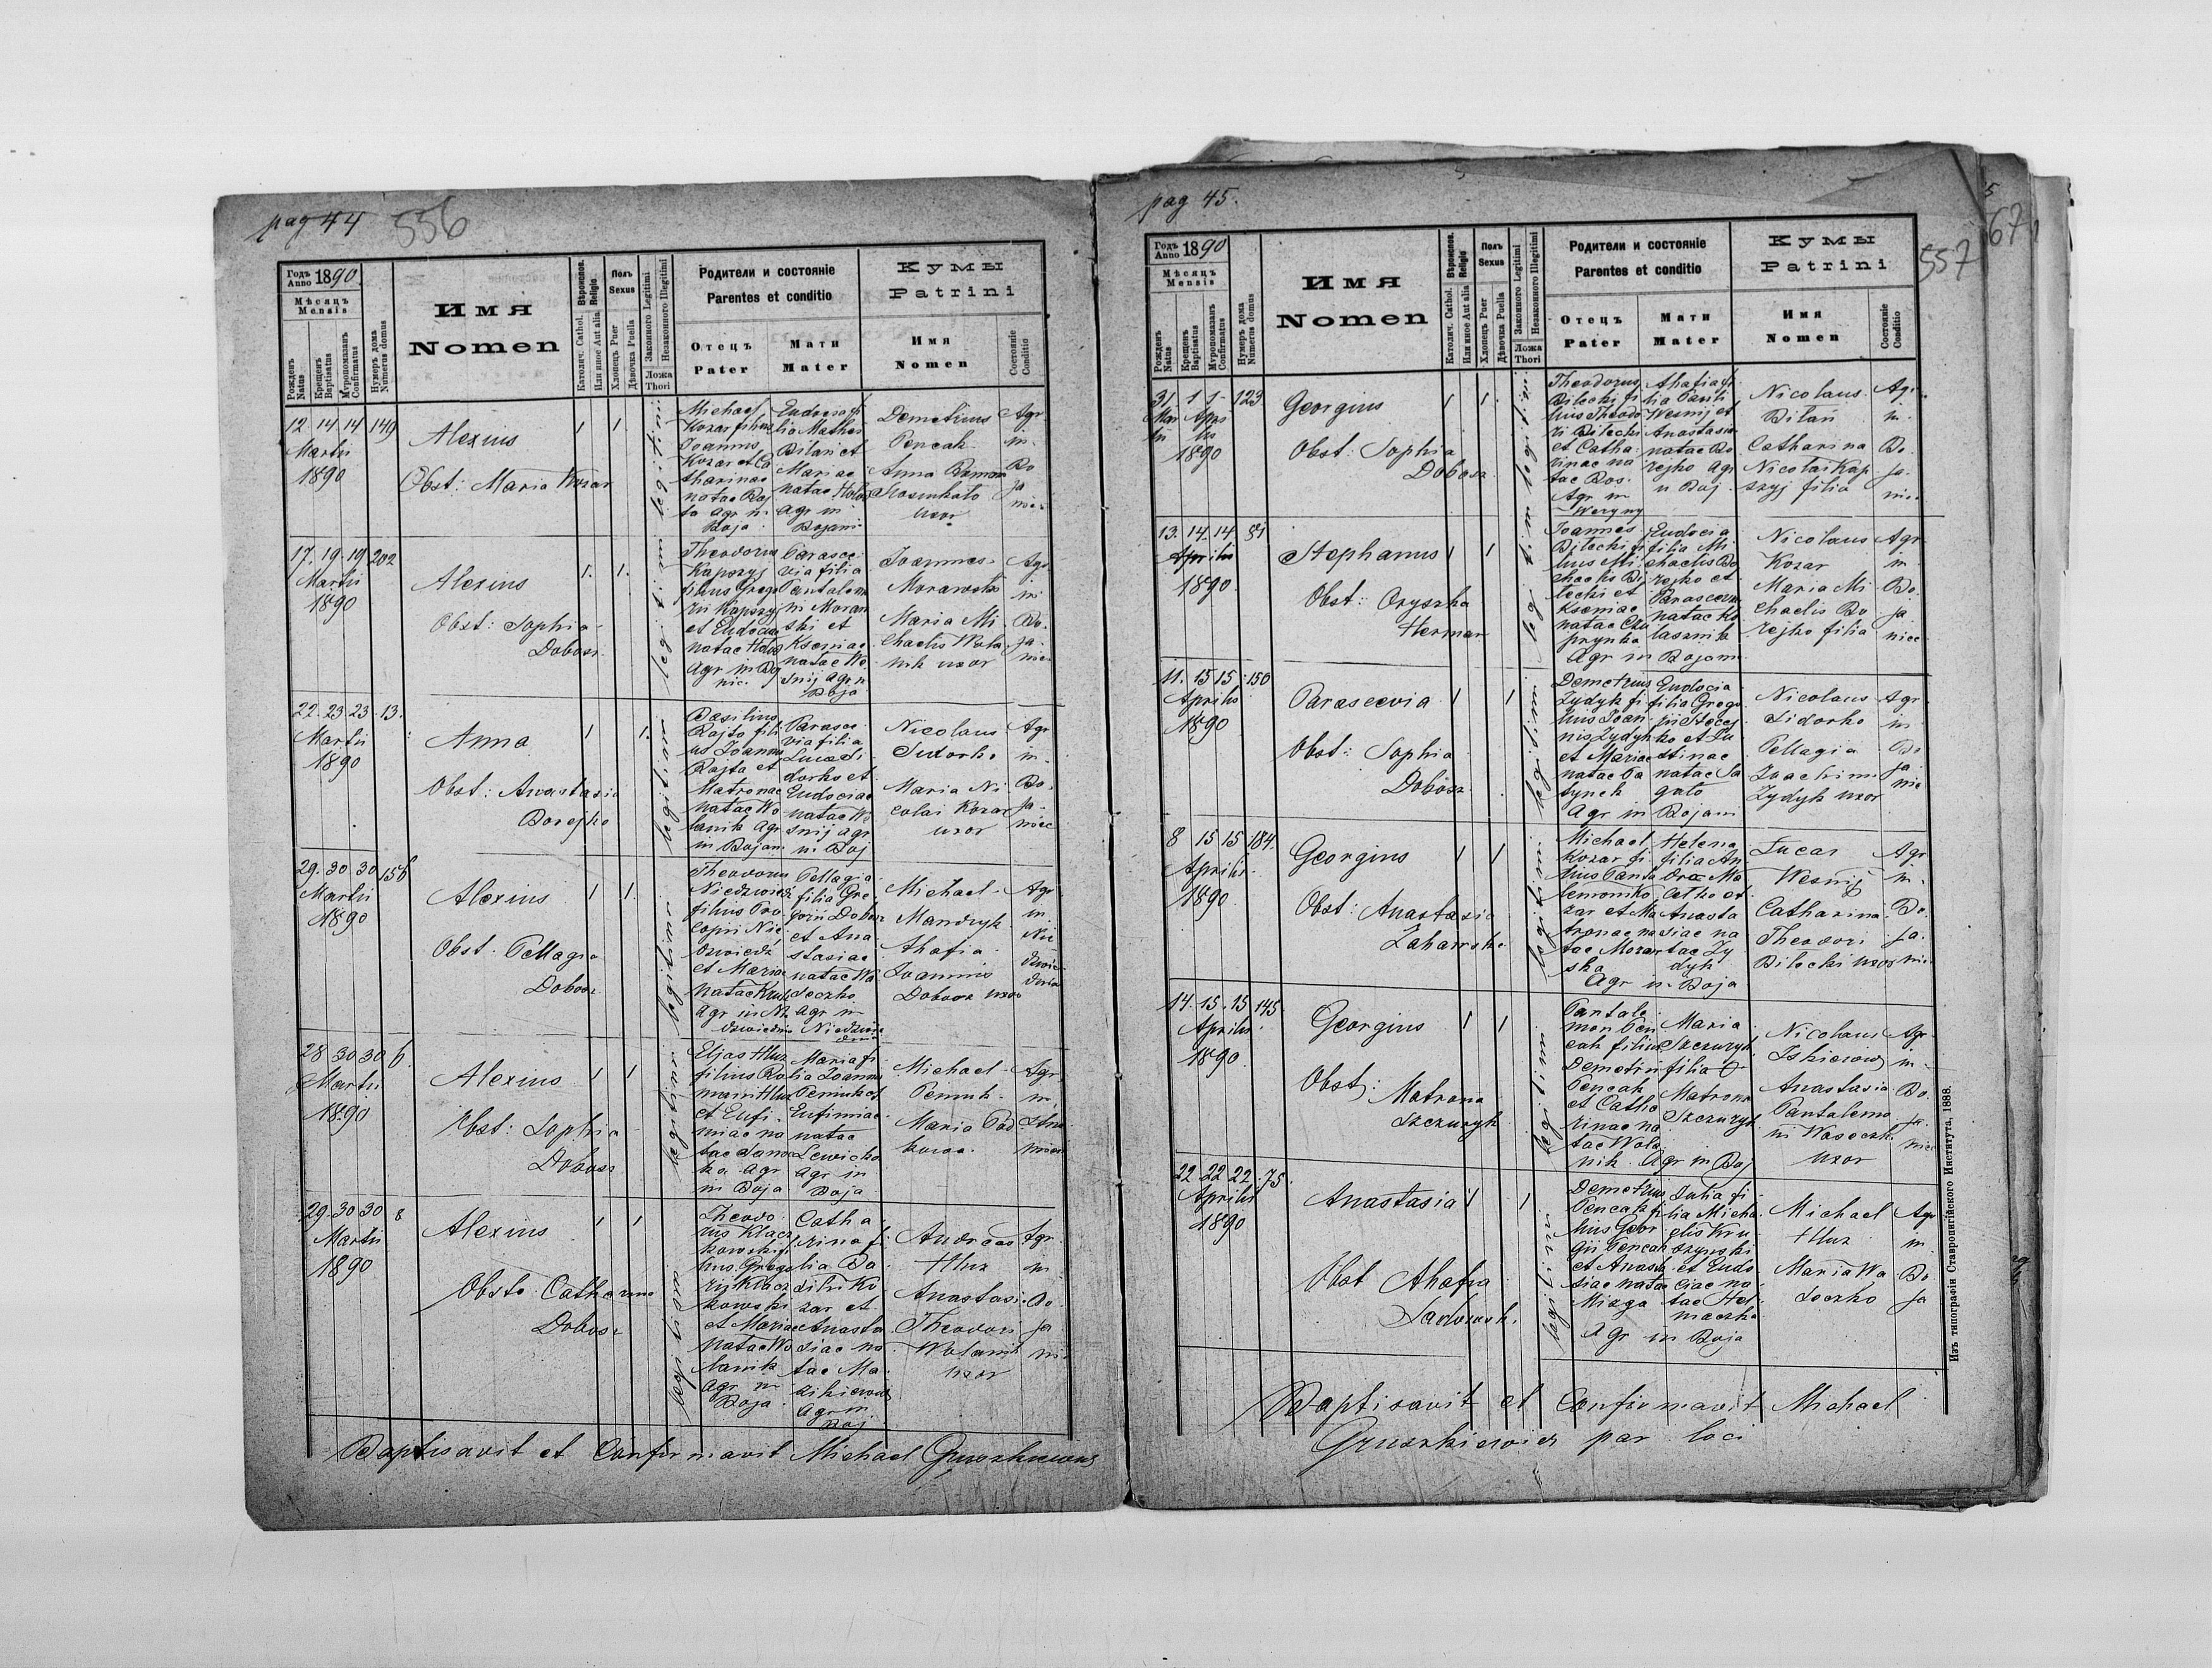 pag 44 556
Годъ Anno 1890.
Мѣсяцъ Mensis
Рожденъ Natus
Крещенъ Baptisatus
Мνропомазанъ Confirmatus
Нумеръ дома Numerus domus
Имя
Nomen
Вѣроиспов. Religio
Католич. Cathol.
Или иное Aut alia
Полъ Sexus
Хлопецъ Puer
Дѣвочка Puella
Законного Legitimi
Незаконного Illegitimi
Ложа Thori
Родители и состоянiе
Parentes et conditio
Отецъ Pater
Мати Mater
Кумы
Patrini
Имя
Nomen
Состоянiе Conditio
12. 14 14 149
Martii
1890
Alexius
Obst: Maria Kozar
1 1.
legitimi
Michael
Kozar filius
Joannis
Kozar et Ca
tharinae
natae Raj
ta agr in
Boja
Eudocia fi
lia Mathei
Bilan et
Mariae
natae Holo
agr in
Bojani
Demetrius
Pencak
Anna Roman
uxor
Agr
in
Bo
ja
niec
17. 19. 19 202
Martii
1890
Alexius
Obst: Sophia
Dobosz
1. 1.
legitimi
Theodorus
Kapszyj
filius Grego
rii Kapszyj
et Eudociae
natae Holo
Agr in Bo
nic.
Parasce
via filia
Pantalemo
ni Moraw
ski et
Kseniae
natae We
snij agr in
Boja
Joannes
Morawski
Maria Mi
chaelis Wola
nik uxor
Agr
in
Bo.
ja
niec
22. 23 23. 13.
Martii
1890
Anna
Obst: Anastasia
Borejko
1 1.
legitimi
Basilius
Rajta fili
us Joannis
Rajta et
Matronae
natae Wo
lanik Agr
in Bojan
Parasce
via filia
Lucae Si
dorko et
Eudociae
natae We
snij agr
in Boj
Nicolaus
Sidorko
Maria Ni
colai Kozar
uxor
Agr
in
Bo.
ja
niec
29. 30 30 156
Martii
1890
Alexius
Obst: Pellagia
Dobosz
1 1.
legitimi
Theodorus
Niedzwiedz
filius Pro
copii Nie
dzwiedz
et Mariae
natae Kruk
Agr in Nie
dzwiednia
Pellagia
filia Gre
gorii Dobosz
et Ana
stasiae
natae Wa
soczko
Agr in
Niedzwie
dnia
Michael
Mandzyk
Ahafia
Joannis
Dobosz uxor
Agr
in
Nie
dzwie
dnia
28 30 30 6.
Martii
1890
Alexius
Obst: Sophia
Dobosz
1 1
legitimi
Elias Hluz
filius Ro
mani Hluz
et Eufi
miae na
tae Samo
ka. agr
in Boja
Maria fi
lia Joannis
Pemuk et
Eufimiae
natae
Lewicka
agr in
Boja
Michael
Pemuk
Maria Pod
kowa
Agr
in
29. 30 30 8
Martii
1890
Alexius
Obste Catharina
Dobosz
1 1
legitimi
Theodo
rus Klacz
kowski fi
lius Grego
rii Klacz
kowski
et Mariae
natae Wo
lanik
Agr in
Boja
Catha
rina fi
lia Ba
silii Ko
zar et
Anasta
siae na
tae Ma
zikiewicz
Agr in
Boj
Andreas
Hluz
Anastasia
Theodori
Wolanik
uxor
Agr
in
Bo
ja
nic
Baptisavit et Confirmavit Michael Gruszkiewicz
pag 45.
557 67
Годъ Anno 1890
Мѣсяцъ Mensis
Рожденъ Natus
Крещенъ Baptisatus
Мνропомазанъ Confirmatus
Нумеръ дома Numerus domus
Имя
Nomen
Вѣроиспов. Religio
Католич. Cathol.
Или иное Aut alia
Полъ Sexus
Хлопецъ Puer
Дѣвочка Puella
Законного Legitimi
Незаконного Illegitimi
Ложа Thori
Родители и состоянiе
Parentes et conditio
Отецъ Pater
Мати Mater
Кумы
Patrini
Имя
Nomen
Состоянiе Conditio
31. 1 1. 123
Mar Apri
tii lis
1890
Georgius
Obst: Sophia
Dobosz
1 1.
legitimi
Theodorus
Bilecki fi
lius Theodo
ri Bilecki
et Catha
rinae na
tae Bos
Agr in
Weryny
Ahafia fi
lia Basili
Wesnij et
Anastasiae
natae Bo
rejko Agr
in Boj
Nicolaus
Bilan
Catharina
Nicolai Kap
szyj filia
Agr
in
Bo.
ja
niec
13. 14. 14. 51
Aprilis
1890
Stephanus
Obst: Oryszka
Herman
1 1
legitimi
Joannes
Bilecki fi
lius Mi
chaelis Bi
lecki et
Kseniae
natae Czu
prynka
Eudocia
filia Mi
chaelis Bo
rejko et
Parasceviae
natae Ko
lasznik
Agr in Bojani
Nicolaus
Kozar
Maria Mi
chaelis Bo
rejko filia
Agr
in
Bo.
ja
niec
11. 15 15. 150
Aprilis
1890
Parascevia
Obst: Sophia
Dobosz
1 1
legitimi
Demetrius
Zydyk fi
lius Joan
nis Zydyk
et Mariae
natae Pa
tynek
Eudocia
filia Grego
rii Stecej
ko et Ju
stinae
natae Sa
gato
Agr in Bojani
Nicolaus
Sidorko
Pellagia
Joachimi
Zydyk uxor
Agr
in
Bo
ja
nic
8 15 15 184.
Aprilis
1890
Georgius
Obst: Anastasia
Zaharska
1 1
legitimi
Michael
Kozar fi
lius Panta
lemoni Ko
zar et Ma
tronae na
tae Mozar
ska
Helena
filia An
dreae Ma
celko et
Anasta
siae na
tae Zy
dyk
Agr in Boja
Lucas
Wesnij
Catharina
Theodori
Bilecki uxor
Agr
in
Bo.
ja
nic
14. 15. 15 145
Aprilis
1890
Georgius
Obst: Matrona
Szczuryk
1 1
legitimi
Pantale
mon Pen
cak filius
Demetrii
Pencak
et Catha
rinae na
tae Wola
nik. Agr in Boj
Maria
Szczuryk
filia
Matrona
Szczuryk
Nicolaus
Iskierow
Anastasia
Pantalemo
ni Wasoczk
uxor
Agr
in
Bo.
ja
niec
22 22 22. 75.
Aprilis
1890
Anastasia
Obst Ahafia
Sadowski
1 1
legitimi
Demetrius
Pencak fi
lius Geor
gii Pencak
et Anasta
siae natae
Mizga
Julia fi
lia Micha
elis Kru
szynski
et Eudo
ciae na
tae Hol
maczka
Agr in Boja
Michael
Hluz
Maria Wa
soczko
Agr
in
Bo
ja
Baptisavit et Confirmavit Michael
Gruszkiewicz par. loci
Изъ типографiи Ставропигiйского Института, 1888.